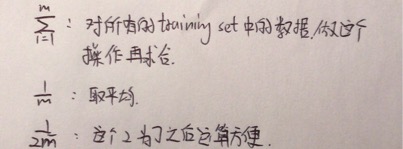 $\sum_{i=1}^{m}$ : 对所有的 training set 中的数据,做这个
操作再求合.
$\frac{1}{m}$ : 取平均.
$\frac{1}{2m}$ : 这个2为了之后运算方便.